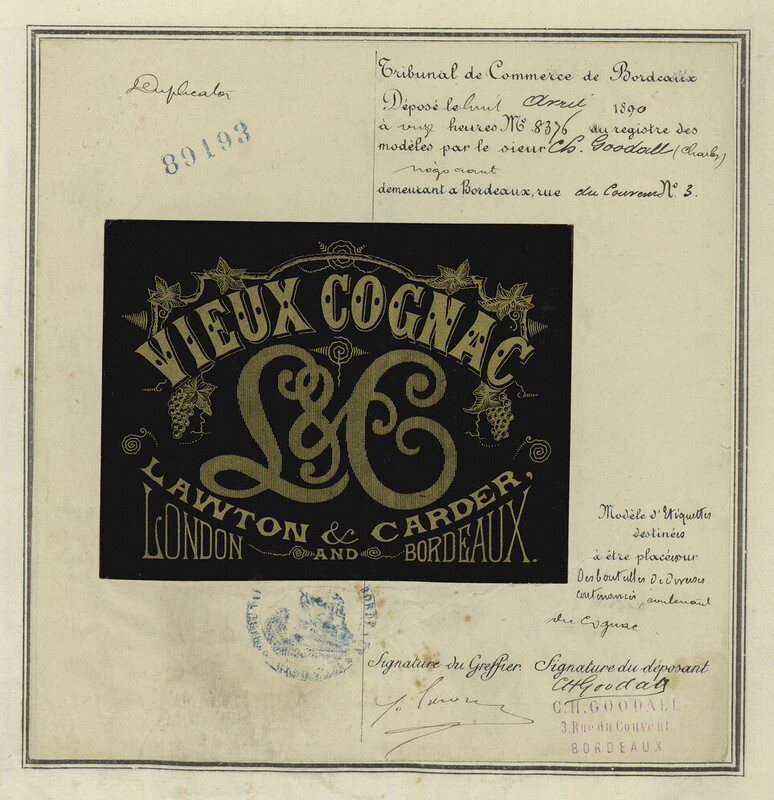 Duplicata
89193
Tribunal de Commerce de Bordeaux
Déposé le huit Avril 1890
à onze heures No. 8376 au registre des
modèles par le sieur Ch. Goodall (Charles)
négociant
demeurant à Bordeaux, rue du Couvent No. 3.
VIEUX COGNAC
L&C
LAWTON & CARDER,
LONDON AND BORDEAUX.
Modèle d'Etiquettes
destinées
à être placées sur
des bouteilles de diverses
contenances contenant
du Cognac
Signature du Greffier. Signature du déposant
CHGoodall
C.H. GOODALL
3, Rue du Couvent
BORDEAUX